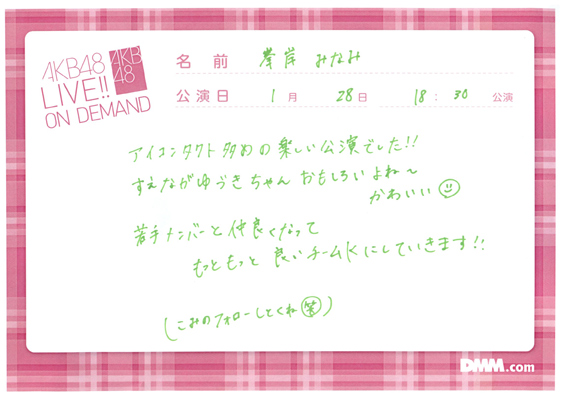 AKB48
LIVE!!
ON DEMAND
AKB
48
名前 峯岸 みなみ
公演日 1月 28日 18:30 公演
アイコンタクト多めの楽しい公演でした!!
すえながゆうきちゃん おもしろいよね〜
かわいい
若手メンバーと仲良くなって
もっともっと 良いチームKにしていきます!!
(こみのフォローしとくね 笑)
DMM.com